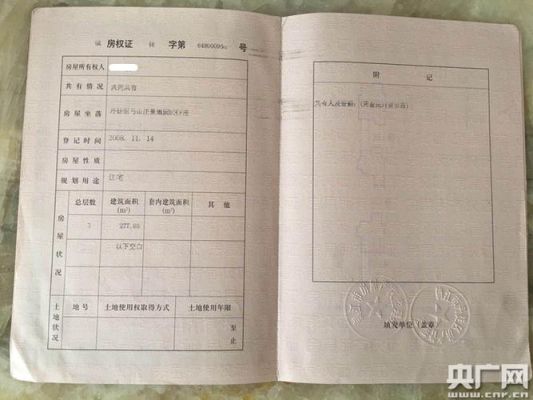 房权证 字第 号
房屋所有权人
共有情况 共同共有
房屋坐落
登记时间 2008. 11. 14
房屋性质
规划用途 住宅
房屋状况
总层数 建筑面积(m²) 套内建筑面积(m²) 其他
3 277.85
以下空白
土地状况
地号 土地使用权取得方式 土地使用年限
至
止
附记
填发单位(盖章)
央广网
www.cnr.cn